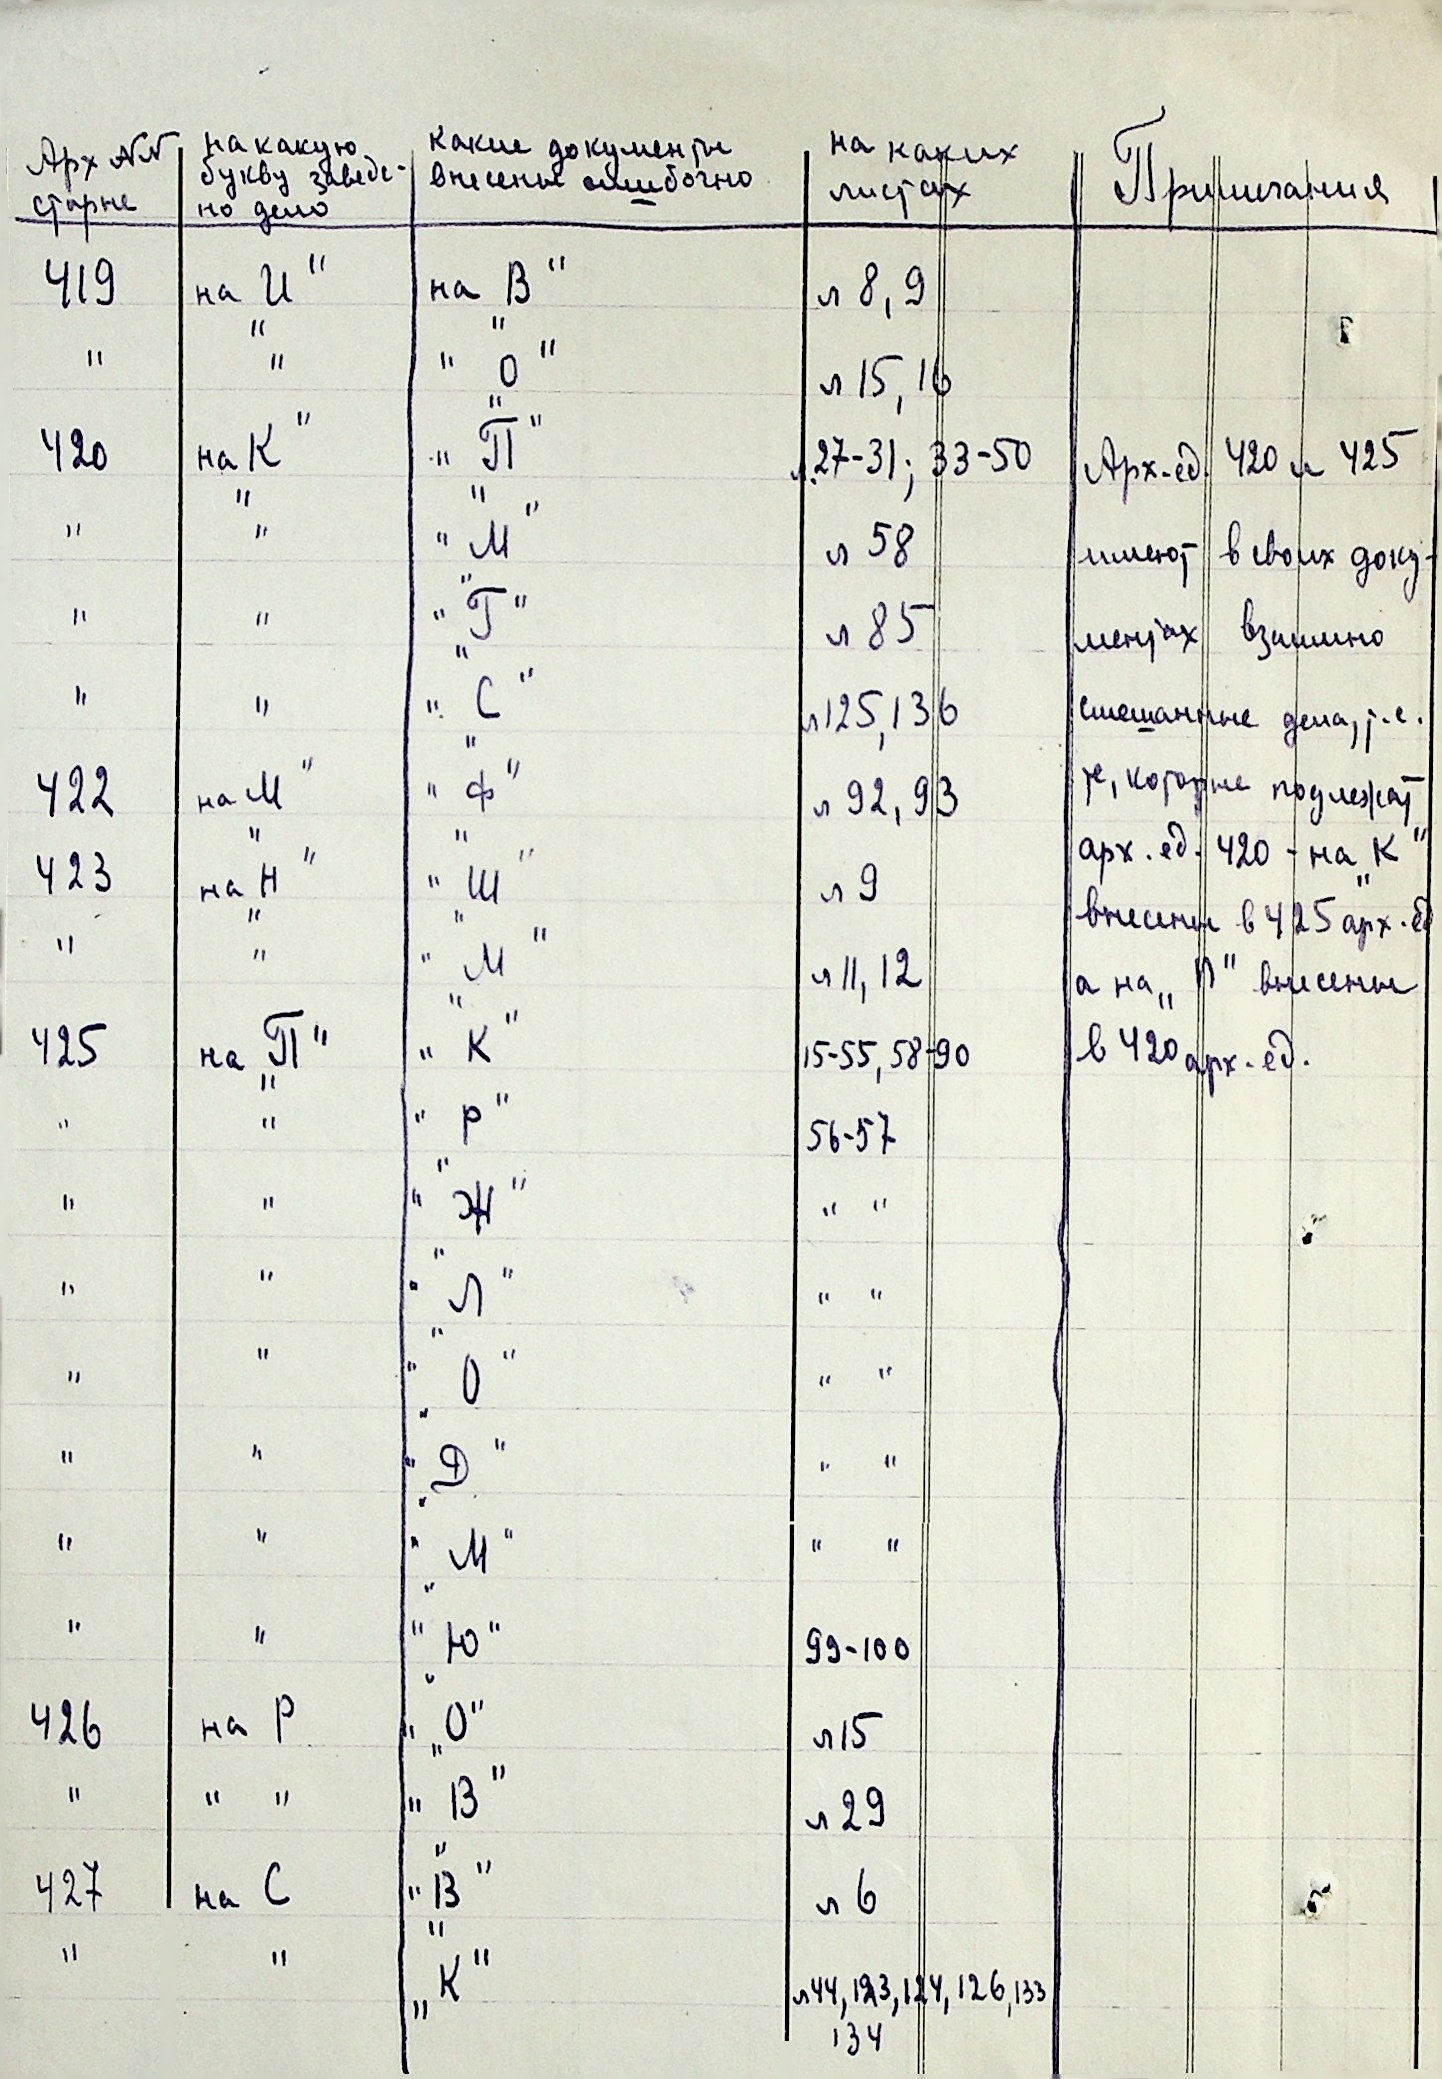 Арх №№ старые | на какую букву заведе-но дело | Какие документы внесены ошибочно | на каких листах | Примечания
419 | на „И" | на „В" | л 8, 9
" | " | " „О" | л 15, 16
420 | на „К" | " „П" | л. 27-31; 33-50 | Арх.ед. 420 и 425
" | " | " „М" | л 58 | имеют в своих доку-
" | " | " „Г" | л 85 | ментах взаимно
" | " | " „С" | л 125, 136 | смешанные дела, т.е.
422 | на „М" | " „Ф" | л 92, 93 | те, которые подлежат
423 | на „Н" | " „Ш" | л 9 | арх.ед. 420 - на „К"
" | " | " „М" | л 11, 12 | внесены в 425 арх.ед
425 | на „П" | " „К" | 15-55, 58-90 | а на „П" внесены
" | " | " „Р" | 56-57 | в 420 арх.ед.
" | " | " „Ж" | " "
" | " | " „Л" | " "
" | " | " „О" | " "
" | " | " „Д" | " "
" | " | " „М" | " "
" | " | " „Ю" | 99-100
426 | на Р | " „О" | л 15
" | " " | " „В" | л 29
427 | на С | " „В" | л 6
" | " | „К" | л 44, 123, 124, 126, 133
134